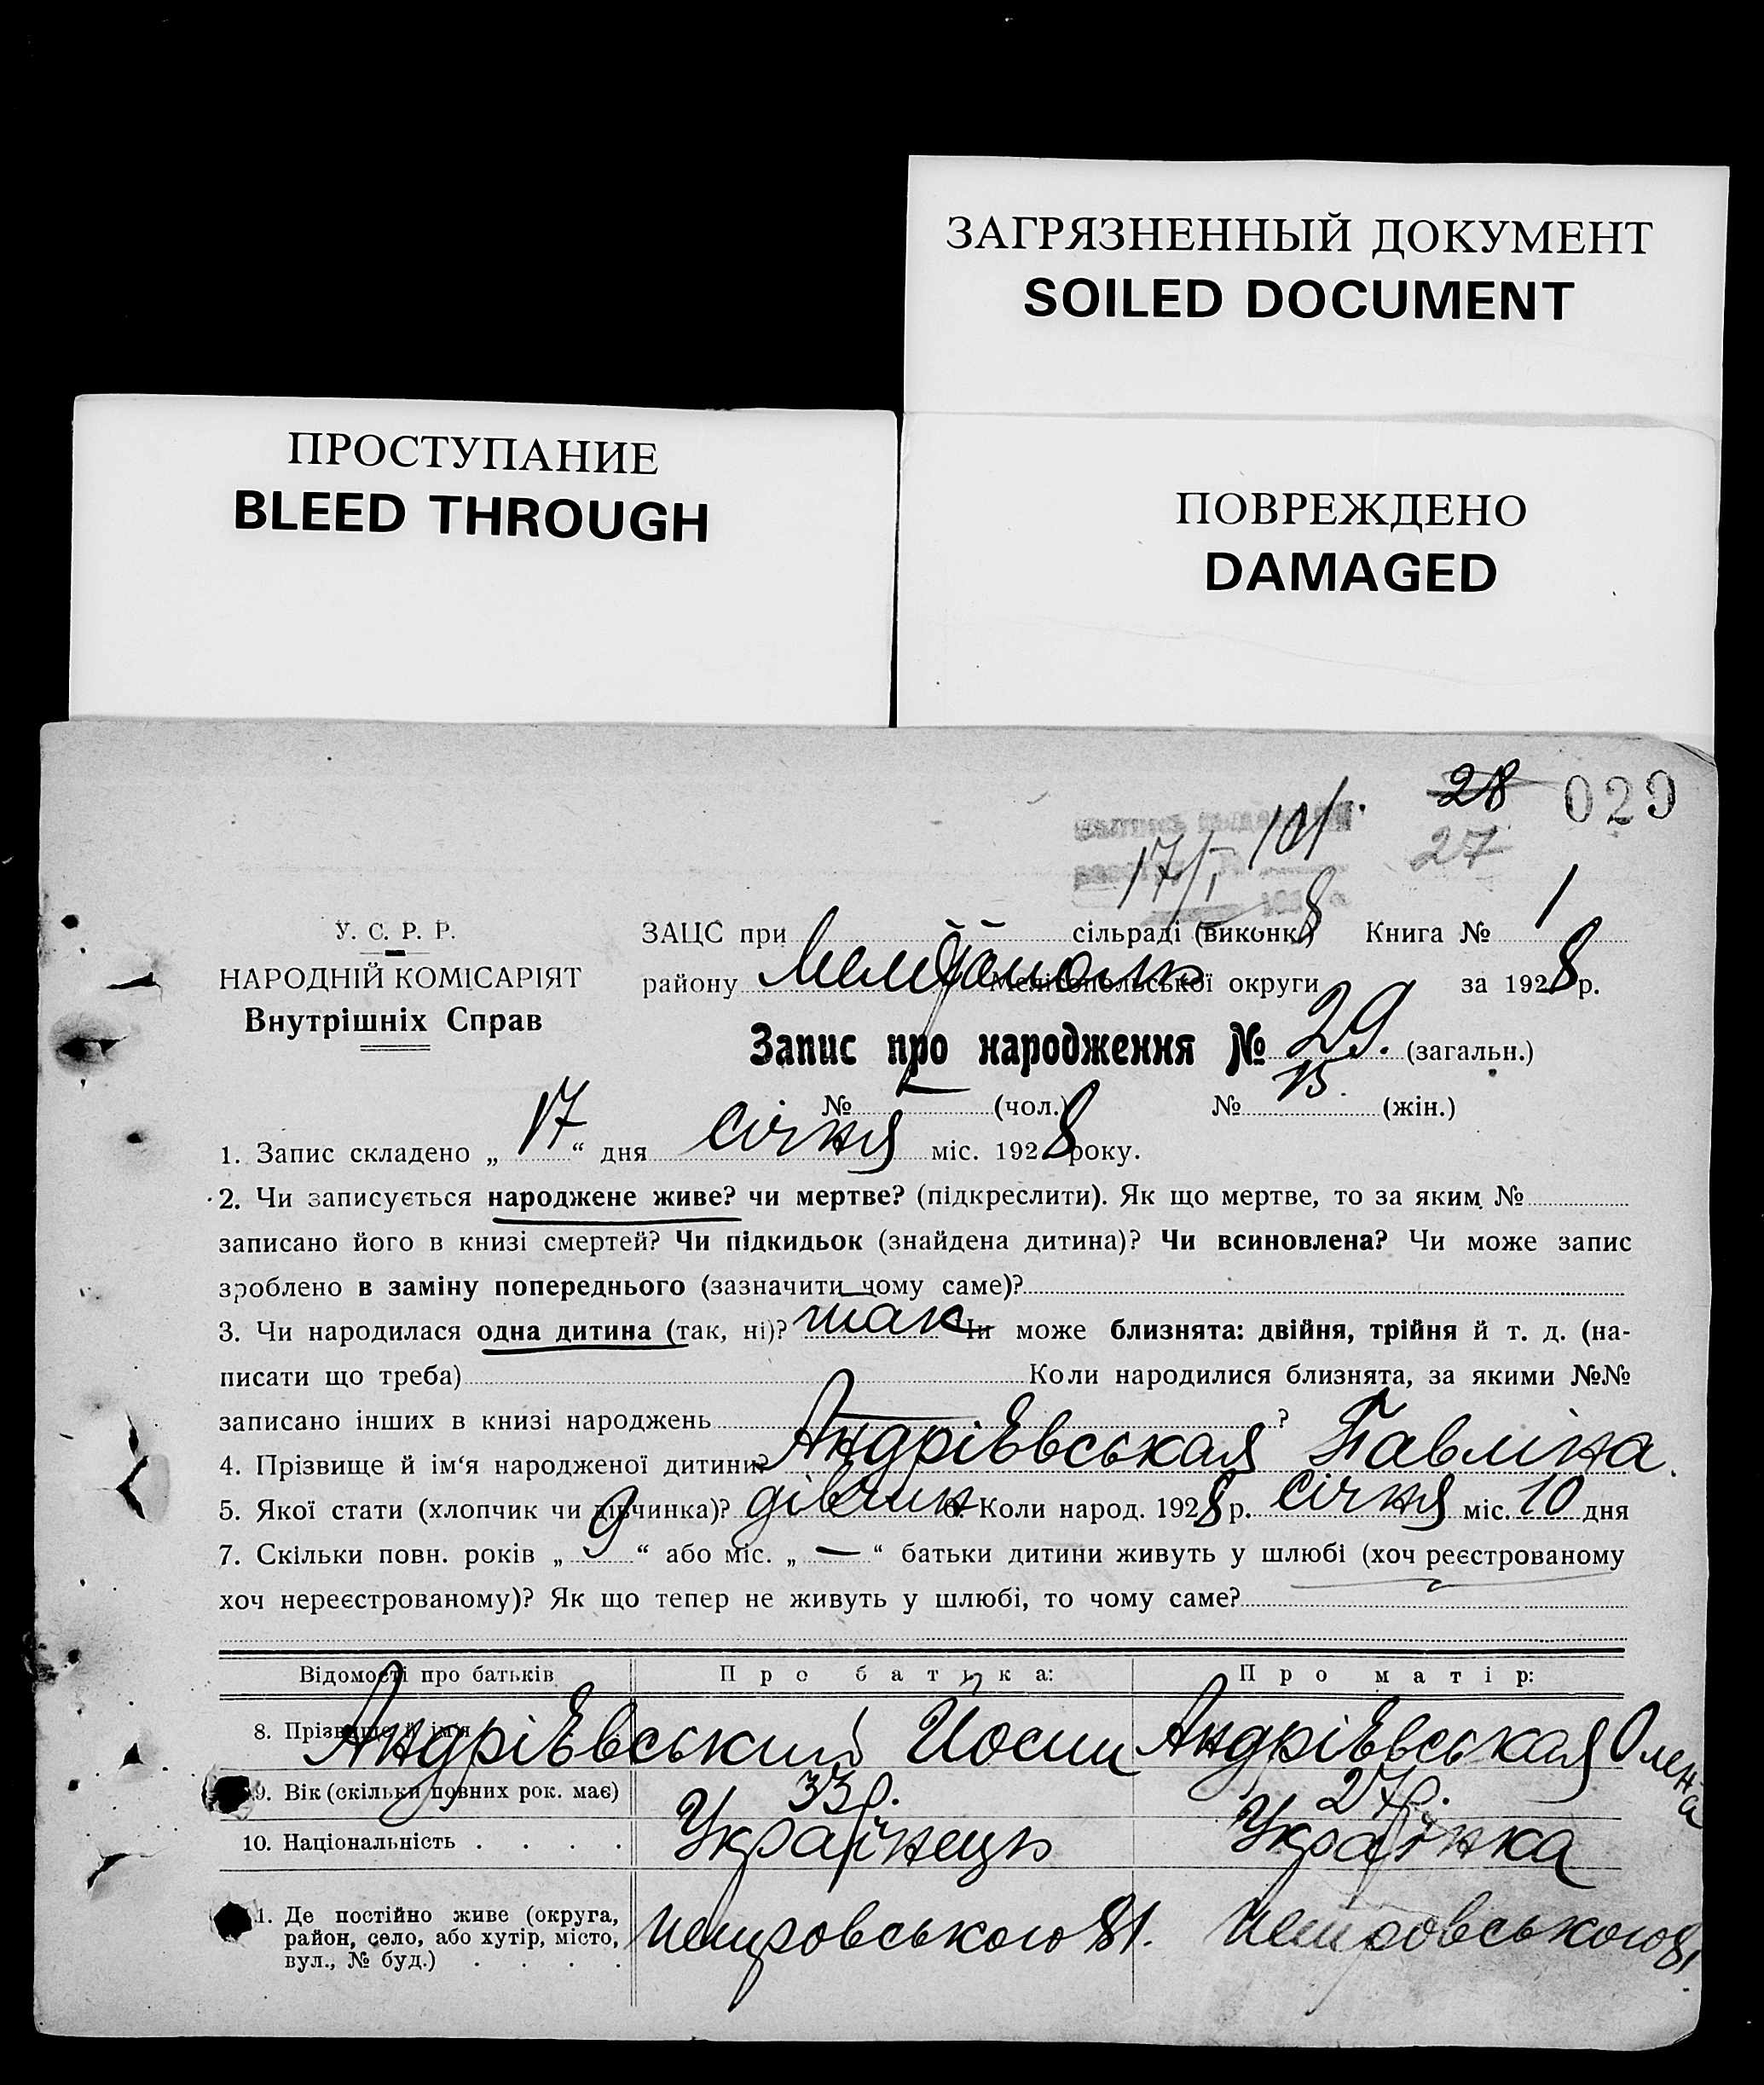 ЗАГРЯЗНЕННЫЙ ДОКУМЕНТ
SOILED DOCUMENT
ПРОСТУПАНИЕ
BLEED THROUGH
ПОВРЕЖДЕНО
DAMAGED
28 029
27
17/I
У. С. Р. Р.
НАРОДНІЙ КОМІСАРІЯТ
Внутрішніх Справ
ЗАЦС при сільраді (виконк.) Книга № 1
району Мелітополь Мелітопольської округи за 1928 р.
Запис про народження № 29. (загальн.)
№ (чол.) № 15. (жін.)
1. Запис складено „ 17 “ дня січня міс. 1928 року.
2. Чи записується народжене живе? чи мертве? (підкреслити). Як що мертве, то за яким №
записано його в книзі смертей? Чи підкидьок (знайдена дитина)? Чи всиновлена? Чи може запис
зроблено в заміну попереднього (зазначити чому саме)?
3. Чи народилася одна дитина (так, ні)? так Чи може близнята: двійня, трійня й т. д. (на-
писати що треба) Коли народилися близнята, за якими №№
записано інших в книзі народжень — ?
4. Прізвище й ім‘я народженої дитини? Андрієвськая Павліна.
5. Якої стати (хлопчик чи дівчинка)? дівчин 6. Коли народ. 1928 р. січня міс. 10 дня
7. Скільки повн. років „ 9 “ або міс. „ — “ батьки дитини живуть у шлюбі (хоч реєстрованому
хоч нереєстрованому)? Як що тепер не живуть у шлюбі, то чому саме?
Відомості про батьків Про батька: Про матір:
8. Прізвище й ім‘я Андрієвський Йосип Андрієвськая Олена
9. Вік (скільки повних рок. має) 33 р. 27 р.
10. Національність . . . . Українець Українка
11. Де постійно живе (округа, район, село, або хутір, місто, вул., № буд.) . . . . Петровського 81. Петровського 81.